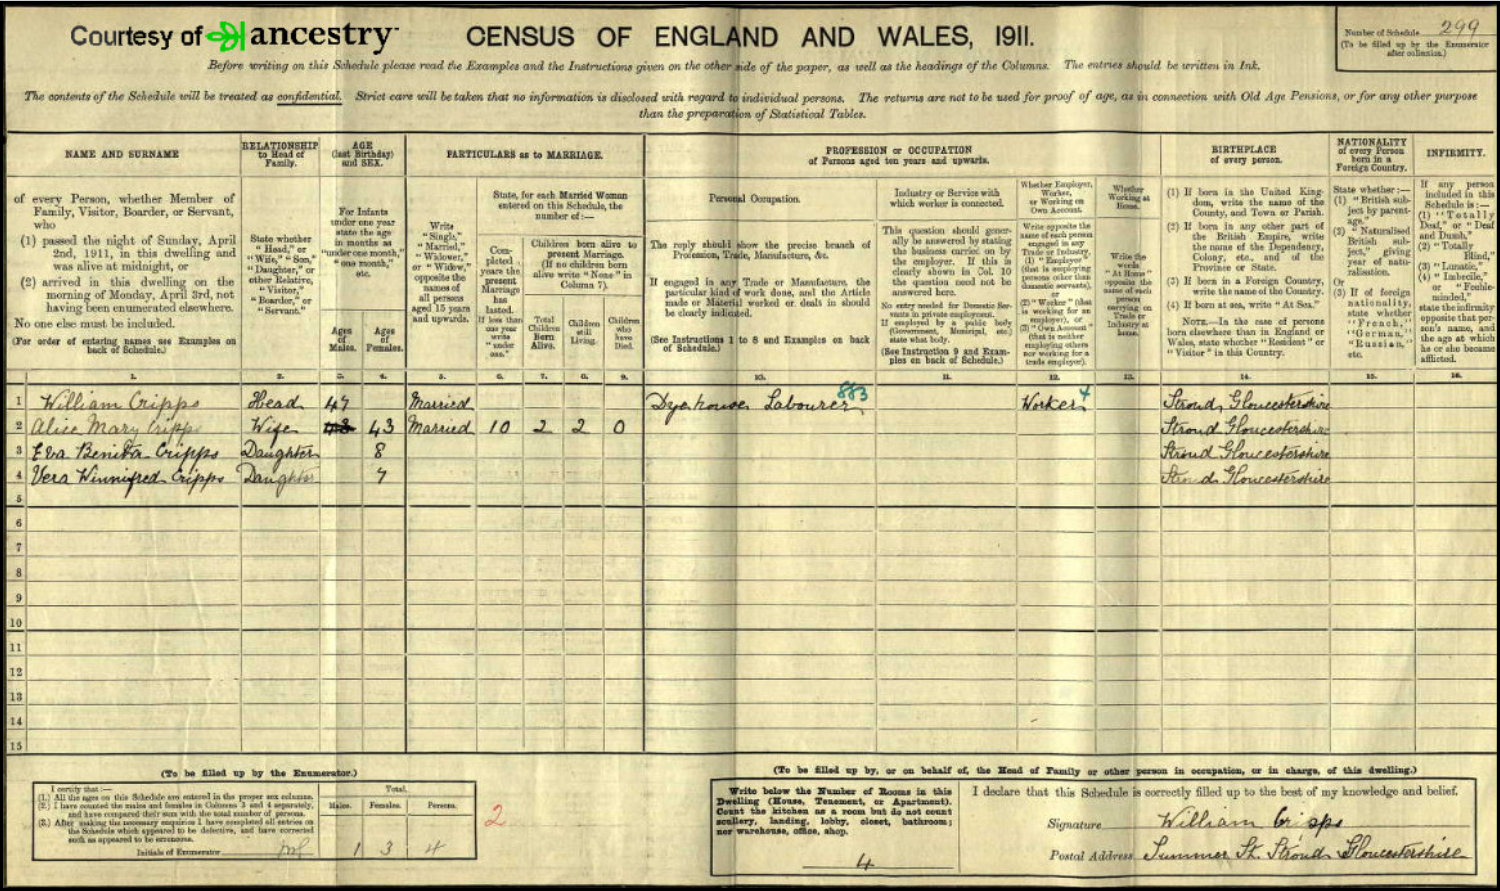 Courtesy of ancestry
CENSUS OF ENGLAND AND WALES, 1911.
Number of Schedule 299
(To be filled up by the Enumerator
after collection.)
Before writing on this Schedule please read the Examples and the Instructions given on the other side of the paper, as well as the headings of the Columns. The entries should be written in Ink.
The contents of the Schedule will be treated as confidential. Strict care will be taken that no information is disclosed with regard to individual persons. The returns are not to be used for proof of age, as in connection with Old Age Pensions, or for any other purpose
than the preparation of Statistical Tables.
NAME AND SURNAME
of every Person, whether Member of
Family, Visitor, Boarder, or Servant,
who
(1) passed the night of Sunday, April
2nd, 1911, in this dwelling and
was alive at midnight, or
(2) arrived in this dwelling on the
morning of Monday, April 3rd, not
having been enumerated elsewhere.
No one else must be included.
(For order of entering names see Examples on
back of Schedule.)
RELATIONSHIP
to Head of
Family.
State whether
"Head," or
"Wife," "Son,"
"Daughter," or
other Relative,
"Visitor,"
"Boarder," or
"Servant."
AGE
(last Birthday)
and SEX.
For Infants
under one year
state the age
in months as
"under one month,"
"one month,"
etc.
Ages
of
Males.
Ages
of
Females.
PARTICULARS as to MARRIAGE.
Write
"Single,"
"Married,"
"Widower,"
or "Widow,"
opposite the
names of
all persons
aged 15 years
and upwards.
State, for each Married Woman
entered on this Schedule, the
number of:—
Com-
pleted
years the
present
Marriage
has
lasted.
If less than
one year
write
"under
one."
Children born alive to
present Marriage.
(If no children born
alive write "None" in
Column 7).
Total
Children
Born
Alive.
Children
still
Living.
Children
who
have
Died.
PROFESSION or OCCUPATION
of Persons aged ten years and upwards.
Personal Occupation.
The reply should show the precise branch of
Profession, Trade, Manufacture, &c.
If engaged in any Trade or Manufacture, the
particular kind of work done, and the Article
made or Material worked or dealt in should
be clearly indicated.
(See Instructions 1 to 8 and Examples on back
of Schedule.)
Industry or Service with
which worker is connected.
This question should gener-
ally be answered by stating
the business carried on by
the employer. If this is
clearly shown in Col. 10
the question need not be
answered here.
No entry needed for Domestic Ser-
vants in private employment.
If employed by a public body
(Government, Municipal, etc.)
state what body.
(See Instruction 9 and Exam-
ples on back of Schedule.)
Whether Employer,
Worker,
or Working on
Own Account.
Write opposite the
name of each person
engaged in any
Trade or Industry,
(1) "Employer"
(that is employing
persons other than
domestic servants),
or
(2) "Worker" (that
is working for an
employer), or
(3) "Own Account"
(that is neither
employing others
nor working for a
trade employer).
Whether
Working at
Home.
Write the
words
"At Home"
opposite the
name of each
person
carrying on
Trade or
Industry at
home.
BIRTHPLACE
of every person.
(1) If born in the United King-
dom, write the name of the
County, and Town or Parish.
(2) If born in any other part of
the British Empire, write
the name of the Dependency,
Colony, etc., and of the
Province or State.
(3) If born in a Foreign Country,
write the name of the Country.
(4) If born at sea, write "At Sea."
NOTE.—In the case of persons
born elsewhere than in England or
Wales, state whether "Resident" or
"Visitor" in this Country.
NATIONALITY
of every Person
born in a
Foreign Country.
State whether:—
(1) "British sub-
ject by parent-
age,"
(2) "Naturalised
British sub-
ject," giving
year of natu-
ralisation.
Or
(3) If of foreign
nationality,
state whether
"French,"
"German,"
"Russian,"
etc.
INFIRMITY.
If any person
included in this
Schedule is:—
(1) "Totally
Deaf," or "Deaf
and Dumb,"
(2) "Totally
Blind,"
(3) "Lunatic,"
(4) "Imbecile,"
or "Feeble-
minded,"
state the infirmity
opposite that per-
son's name, and
the age at which
he or she became
afflicted.
1. 2. 3. 4. 5. 6. 7. 8. 9. 10. 11. 12. 13. 14. 15. 16.
1 William Cripps Head 47 Married Dyehouse Labourer 883 Worker 4 Stroud Gloucestershire
2 Alice Mary Cripps Wife 43 43 Married 10 2 2 0 Stroud Gloucestershire
3 Eva Benita Cripps Daughter 8 Stroud Gloucestershire
4 Vera Winnifred Cripps Daughter 7 Stroud Gloucestershire
5
6
7
8
9
10
11
12
13
14
15
(To be filled up by the Enumerator.)
I certify that:—
(1.) All the ages on this Schedule are entered in the proper sex columns.
(2.) I have counted the males and females in Columns 3 and 4 separately,
and have compared their sum with the total number of persons.
(3.) After making the necessary enquiries I have completed all entries on
the Schedule which appeared to be defective, and have corrected
such as appeared to be erroneous.
Initials of Enumerator
Total.
Males. Females. Persons.
1 3 4
2
(To be filled up by, or on behalf of, the Head of Family or other person in occupation, or in charge, of this dwelling.)
Write below the Number of Rooms in this
Dwelling (House, Tenement, or Apartment).
Count the kitchen as a room but do not count
scullery, landing, lobby, closet, bathroom;
nor warehouse, office, shop.
4
I declare that this Schedule is correctly filled up to the best of my knowledge and belief.
Signature William Cripps
Postal Address Summer St. Stroud Gloucestershire